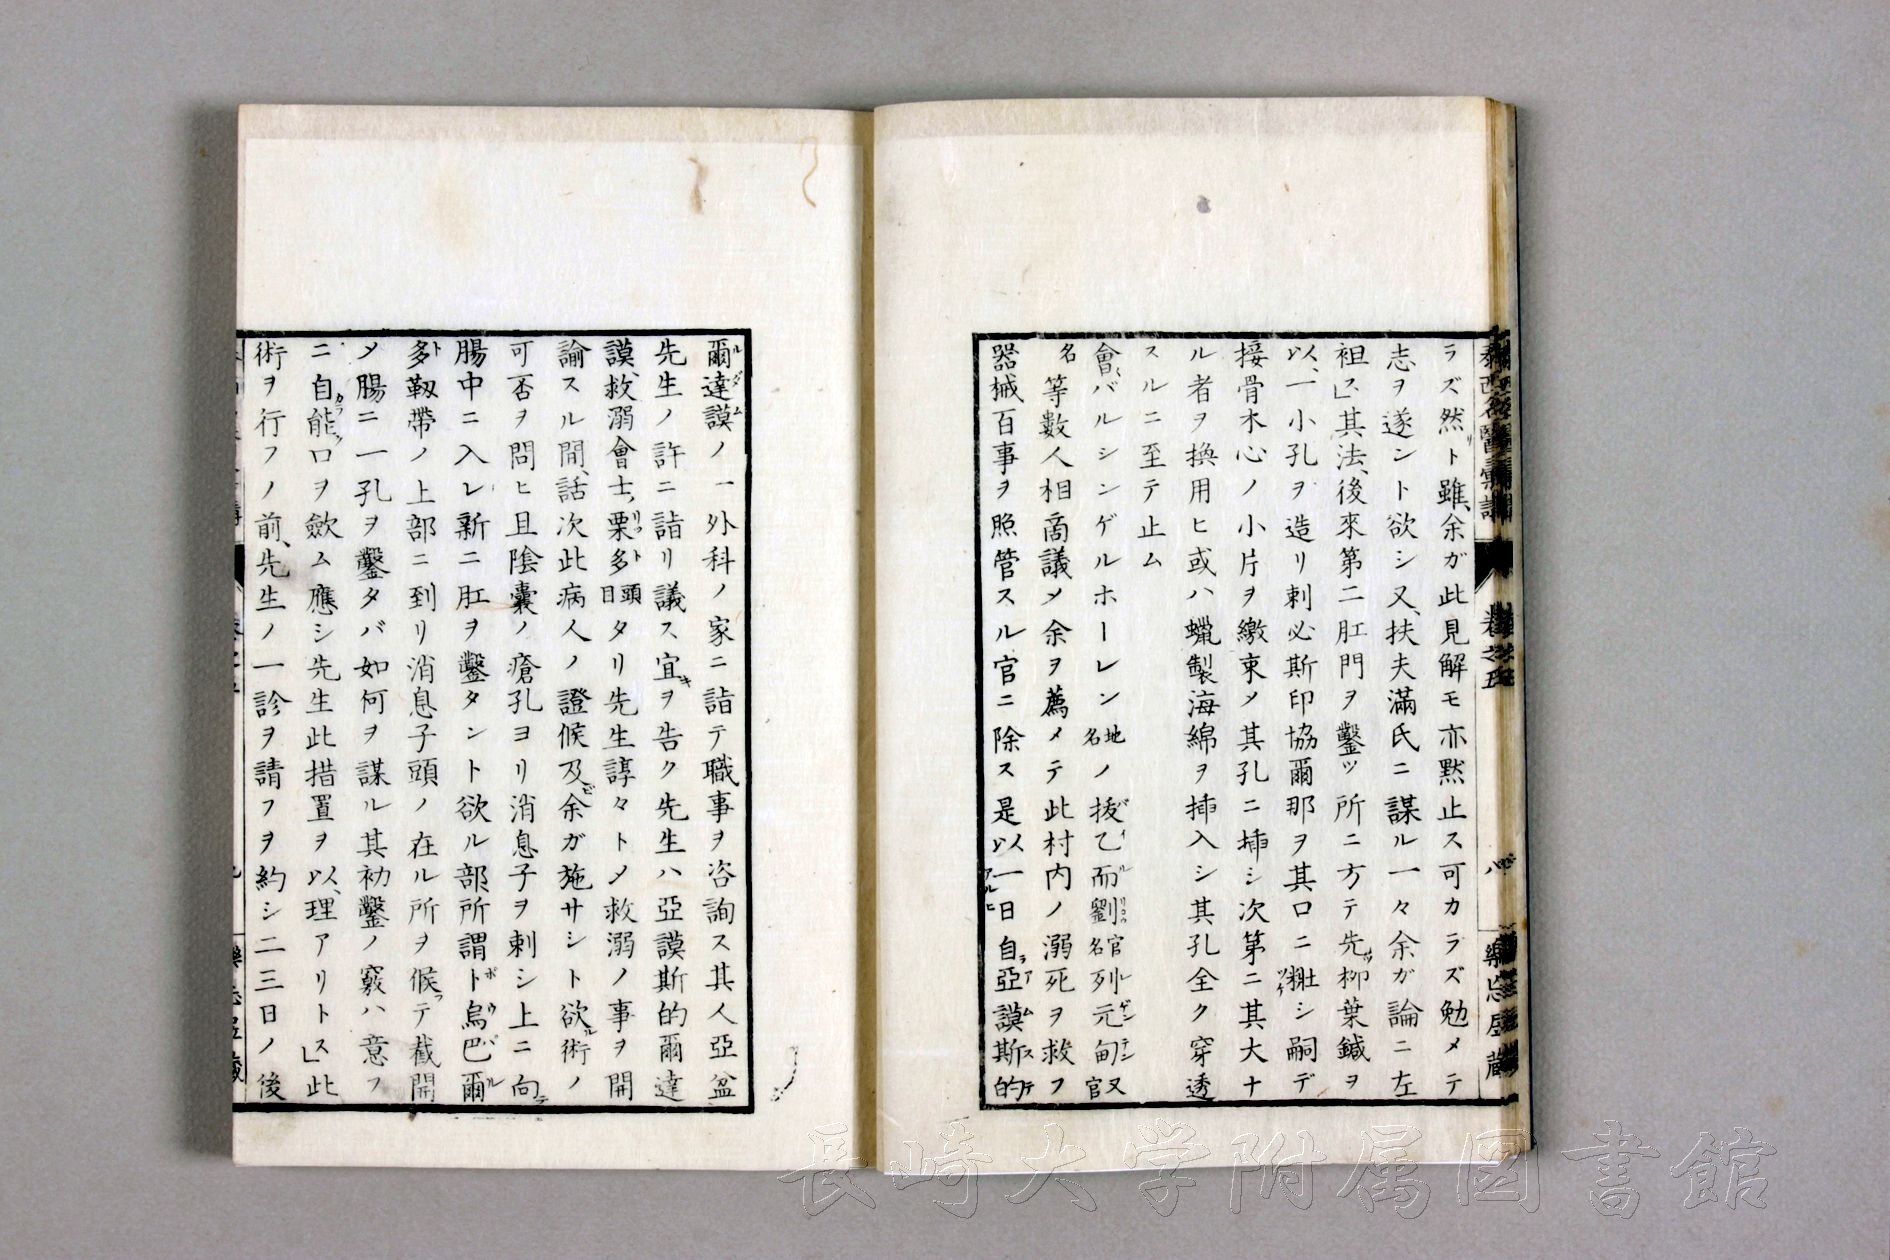 泰西名醫彙講
卷之五
八
樂忘居藏
ラズ然リト雖、余ガ此見解モ亦黙止ス可カラズ勉メテ
志ヲ遂ント欲シ又、扶夫滿氏ニ謀ル一々余ガ論ニ左
袒ス」其法、後來第二肛門ヲ鑿ツ所ニ方テ先ツ柳葉鍼ヲ
以、一小孔ヲ造リ刺必斯印協爾那ヲ其口ニ糚シ嗣デ
接骨木心ノ小片ヲ繳束メ其孔ニ揷シ次第ニ其大ナ
ル者ヲ換用ヒ或ハ蠟製海綿ヲ揷入シ其孔全ク穿透
スルニ至テ止ム
會、バルシンゲルホーレン地名ノ拔乙而劉官名列元甸又官
名等數人相啇議メ余ヲ薦メテ此村内ノ溺死ヲ救フ
器械百事ヲ照管スル官ニ除ス是以一日自亞謨斯的
爾達謨ノ一外科ノ家ニ詣テ職事ヲ咨詢ス其人亞盆
先生ノ許ニ詣リ議ス宜キヲ告ク先生ハ亞謨斯的爾達
謨、救溺會士、栗多頭目タリ先生諄々トメ救溺ノ事ヲ開
諭スル間、話次此病人ノ證候及ビ余ガ施サント欲ル術ノ
可否ヲ問ヒ且陰囊ノ瘡孔ヨリ消息子ヲ刺シ上ニ向テ
腸中ニ入レ新ニ肛ヲ鑿タント欲ル部所謂ト烏巴爾
多靱帶ノ上部ニ到リ消息子頭ノ在ル所ヲ候フテ截開
メ腸ニ一孔ヲ鑿タバ如何ヲ謀ル其初鑿ノ竅ハ意フ
ニ自カラ能ク口ヲ歛ム應シ先生此措置ヲ以、理アリトス」此
術ヲ行フノ前、先生ノ一診ヲ請フヲ約シ二三日ノ後
長崎大学附属図書館